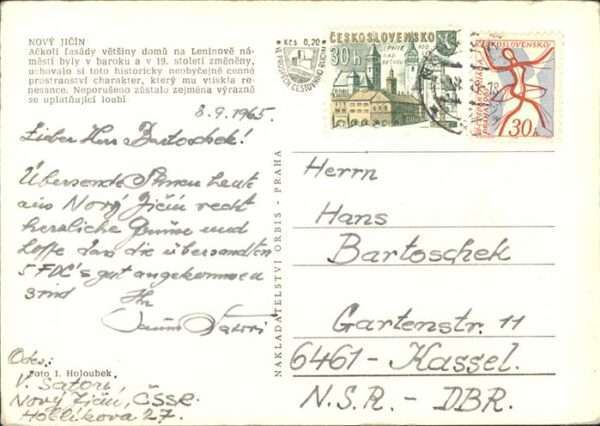 NOVÝ JIČÍN
Ačkoli fasády většiny domů na Leninově ná-
městí byly v baroku a v 19. století změněny,
uchovalo si toto historicky neobyčejně cenné
prostranství charakter, který mu vtiskla re-
nesance. Neporušeno zůstalo zejména výrazně
se uplatňující loubí
3.9.1965.
Lieber Herr Bartoschek!
Übersende Ihnen heut
aus Nový Jičín recht
herzliche Grüsse und
hoffe das die übersandten
5 FDC's gut angekommen
sind
Ihr
Foto I. Holoubek
Odes:
V. Satori
Nový Jičín, ČSSR.
Hollíkova 27.
NAKLADATELSTVÍ ORBIS - PRAHA
Kčs 0,20
VE PROSPĚCH CESTOVNÍHO RUCHU
ČESKOSLOVENSKO
30h
LIPNÍK NAD BEČVOU
ČESKOSLOVENSKO
30h
Herrn
Hans
Bartoschek
Gartenstr. 11
6461 - Kassel.
N.S.R. - DBR.